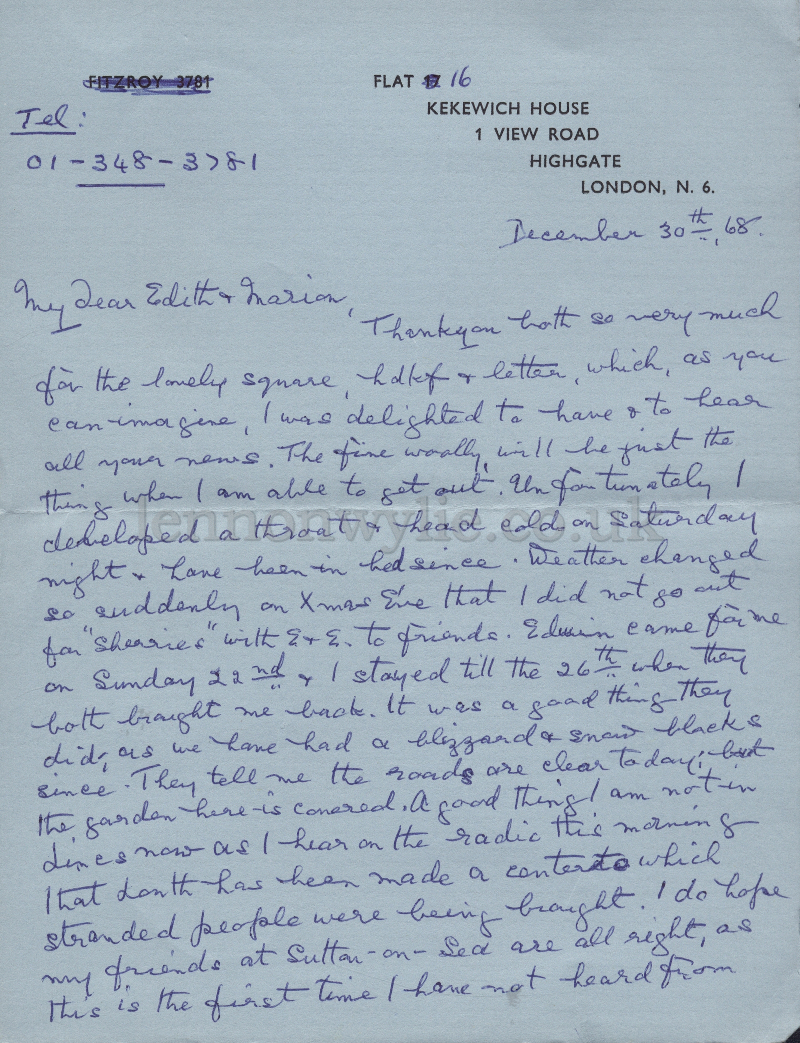 FITZROY 3781
FLAT 17 16
KEKEWICH HOUSE
1 VIEW ROAD
HIGHGATE
LONDON, N. 6.
Tel:
01-348-3781
December 30th, 68.
My dear Edith & Marion,
Thankyou both so very much
for the lovely square, hdkf & letter, which, as you
can imagine, I was delighted to have & to hear
all your news. The fine woolly will be just the
thing when I am able to get out. Unfortunately I
developed a throat & head cold on Saturday
night & have been in bed since. Weather changed
so suddenly on Xmas Eve that I did not go out
for "sherries" with E & E. to friends. Edwin came for me
on Sunday 22nd & I stayed till the 26th when they
both brought me back. It was a good thing they
did, as we have had a blizzard & snow blocks
since. They tell me the roads are clear today, but
the garden here is covered. A good thing I am not in
Lincs now as I hear on the radio this morning
that Louth has been made a center to which
stranded people were being brought. I do hope
my friends at Sutton-on-Sea are all right, as
this is the first time I have not heard from
lennonwylie.co.uk